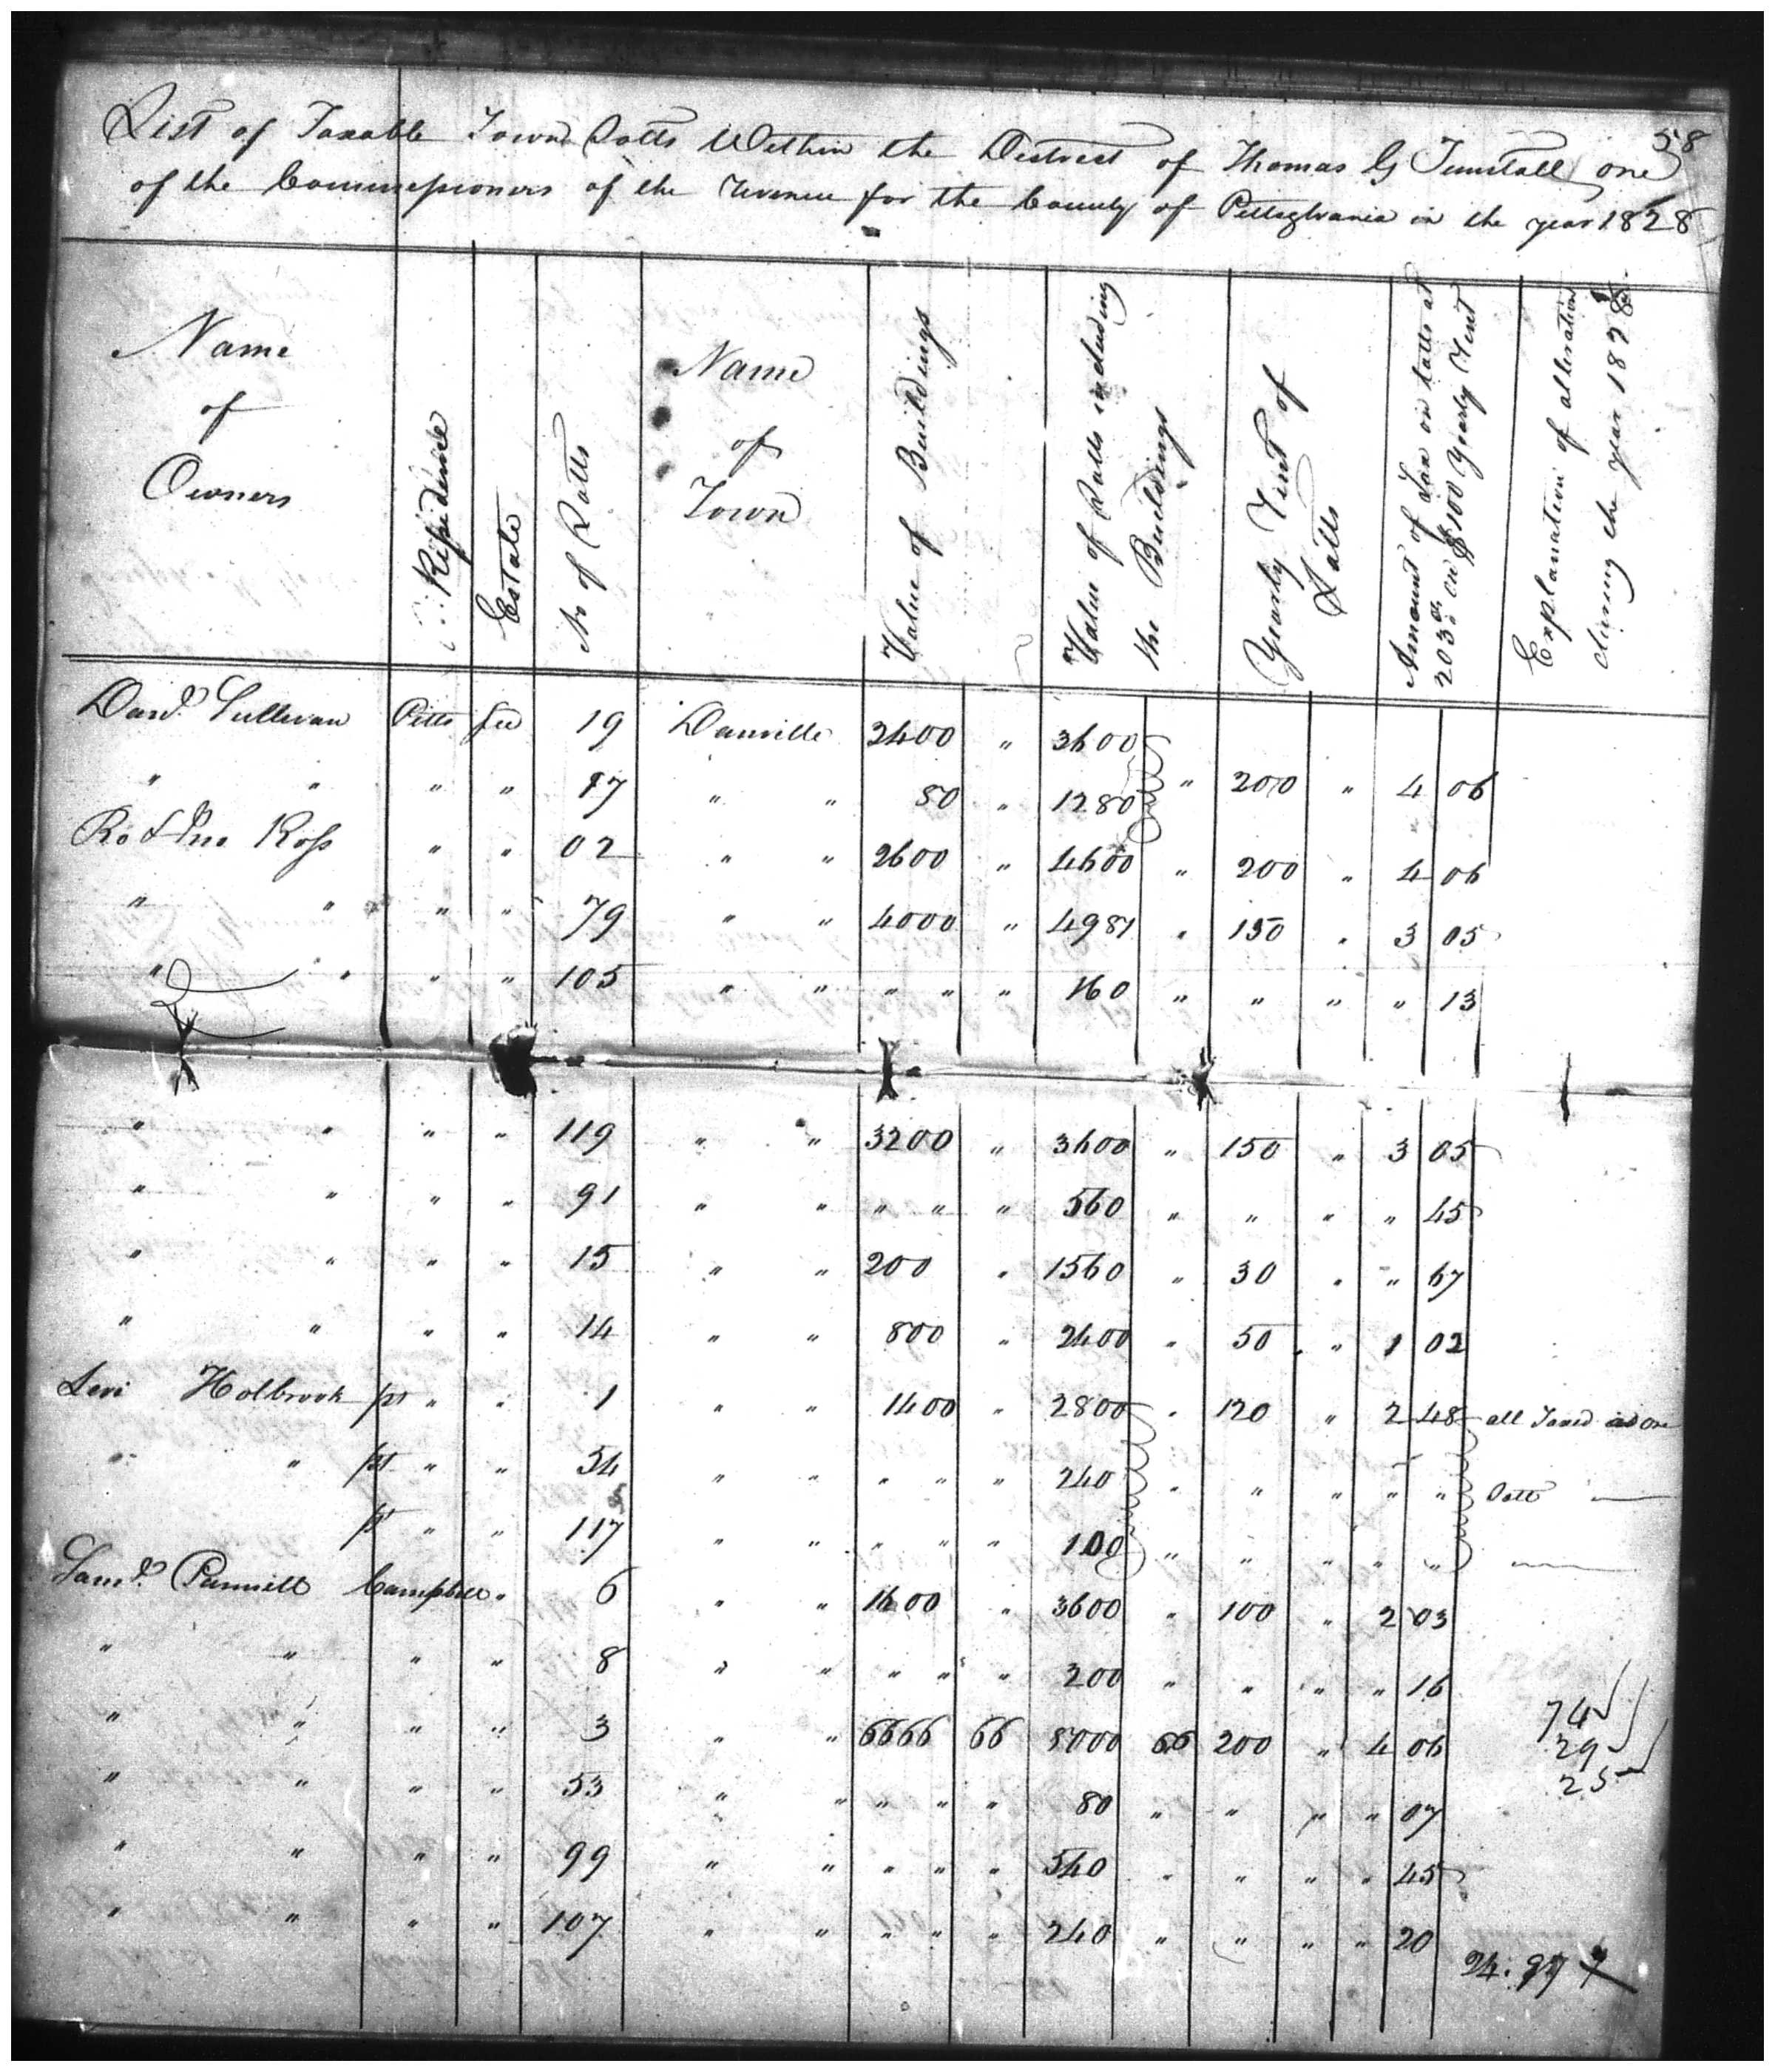 58
List of Taxable Town Lotts Within the District of Thomas G Tunstall one
of the Commissioners of the revenue for the County of Pittsylvania in the year 1828
Name of Owners
Residence
Estate
No of Lotts
Name of Town
Value of Buildings
Value of Lotts including the Buildings
Yearly Rent of Lotts
Amount of Tax on Lotts at 203 cts on $100 Yearly Rent
Explanation of alterations during the year 1828
Danl. Sullivan Pitts fee 19 Danville 2400 " 3600
" " " " 17 " " 80 " 1280 " 200 " 4 06
Ro & Jno Ross " " 02 " " 2600 " 4600 " 200 " 4 06
" " " " 79 " " 4000 " 4981 " 150 " 3 05
" " " " 105 " " " " " 160 " " " " 13
" " " " 119 " " 3200 " 3600 " 150 " 3 05
" " " " 91 " " " " " 560 " " " " 45
" " " " 15 " " 200 " 1560 " 30 " " 67
" " " " 14 " " 800 " 2400 " 50 " 1 02
Levi Holbrook pt " " 1 " " 1400 " 2800 " 120 " 2 48 all Taxed as one
" " pt " " 54 " " " " " 240 " " " " " Lott
pt " " 117 " " " " " 100 " " " " "
Saml. Pannill Campbell " 6 " " 1600 " 3600 " 100 " 2 03
" " " " 8 " " " " " 200 " " " " 16
" " " " 3 " " 6666 66 8000 66 200 " 4 06
74
29
25
" " " " 53 " " " " " 80 " " " " 07
" " " " 99 " " " " " 540 " " " " 45
" " " " 107 " " " " " 240 " " " " 20
24.97